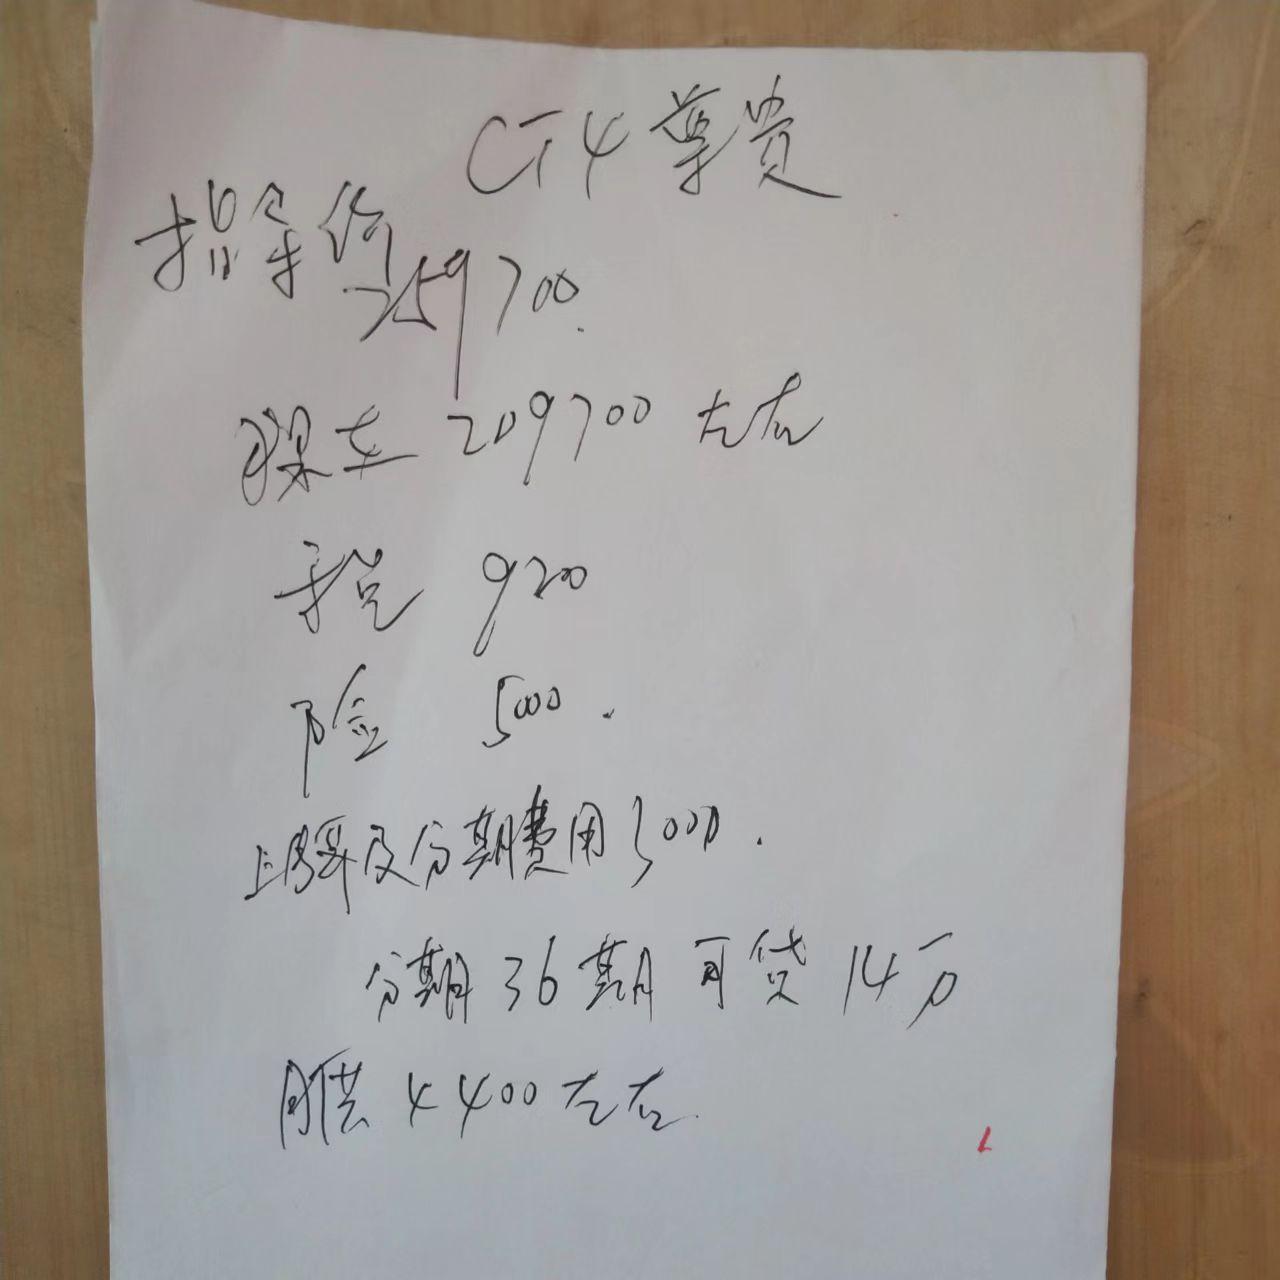 CT4尊贵
指导价
259700.
裸车 209700 左右
税 9200
险 5000.
上牌及分期费用3000.
分期36期 可贷14万
月供4400左右